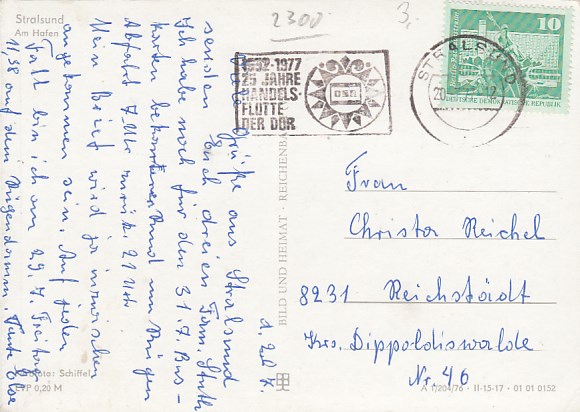 Stralsund
Am Hafen
2300
3,-
10
DEUTSCHE DEMOKRATISCHE REPUBLIK
STRALSUND
1952-1977
25 JAHRE
HANDELS-
FLOTTE
DER DDR
DSR
Grüße aus Stralsund
senden Euch dreien Fam.
Ich habe noch für den 31.7. Bus-
karten bekommen Rund um Rügen
Abfahrt 7 Uhr zurück 21 Uhr.
Mein Brief wird ja inzwischen
angekommen sein. Auf jeden
Fall bin ich am 29.7. Freitag
11,38 auf dem Rügendamm. Tante Else
BILD UND HEIMAT · REICHENBACH
Frau
Christa Reichel
8231 Reichstädt
Krs. Dippoldiswalde
Nr. 46
Foto: Schiffel
EVP 0,20 M
A 1/204/76 II-15-17 01 01 0152